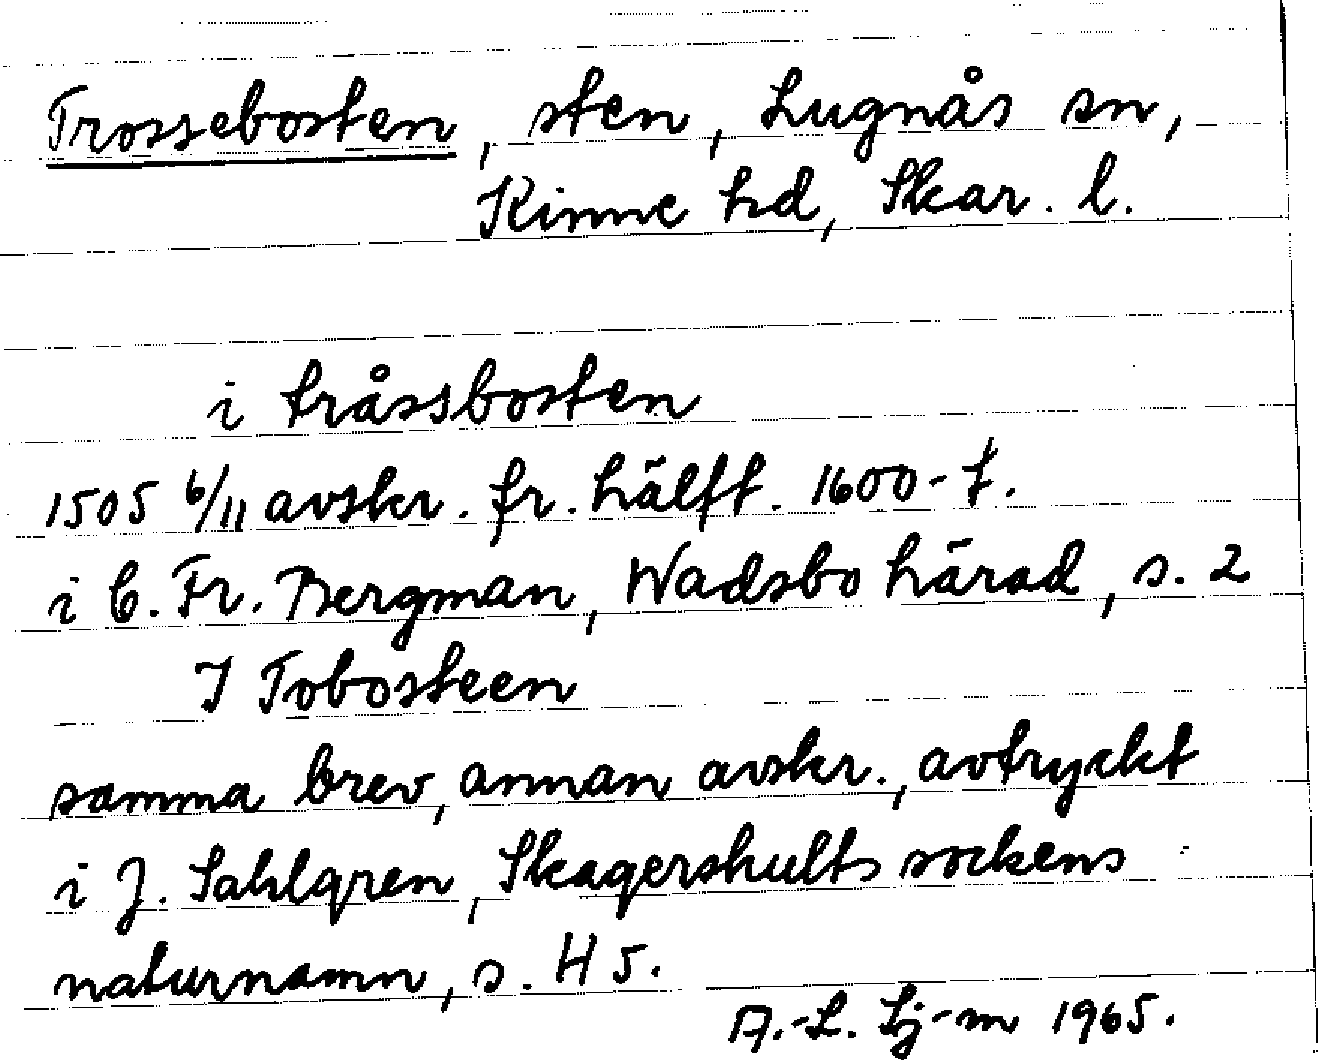 Trossebosten, sten, Lugnås sn,
Kinne hd, Skar. l.
i tråssbosten
1505 6/11 avskr. fr. hälft. 1600-t.
i C. Fr. Bergman, Wadsbo härad, s. 2
I Tobosteen
samma brev, annan avskr., avtryckt
i J. Sahlgren, Skagershults sockens
naturnamn, s. H 5.
A.-L. Lj-m 1965.